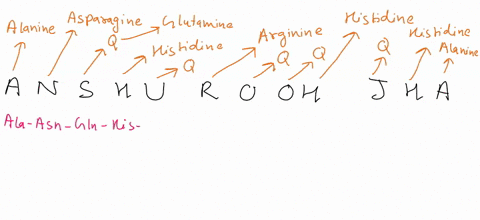 Asparagine Glutamine Histidine
Alanine Q Arginine Histidine
Histidine Q Q Q Q Alanine
A N S H U R O O H J H A
Ala-Asn-Gln-His-